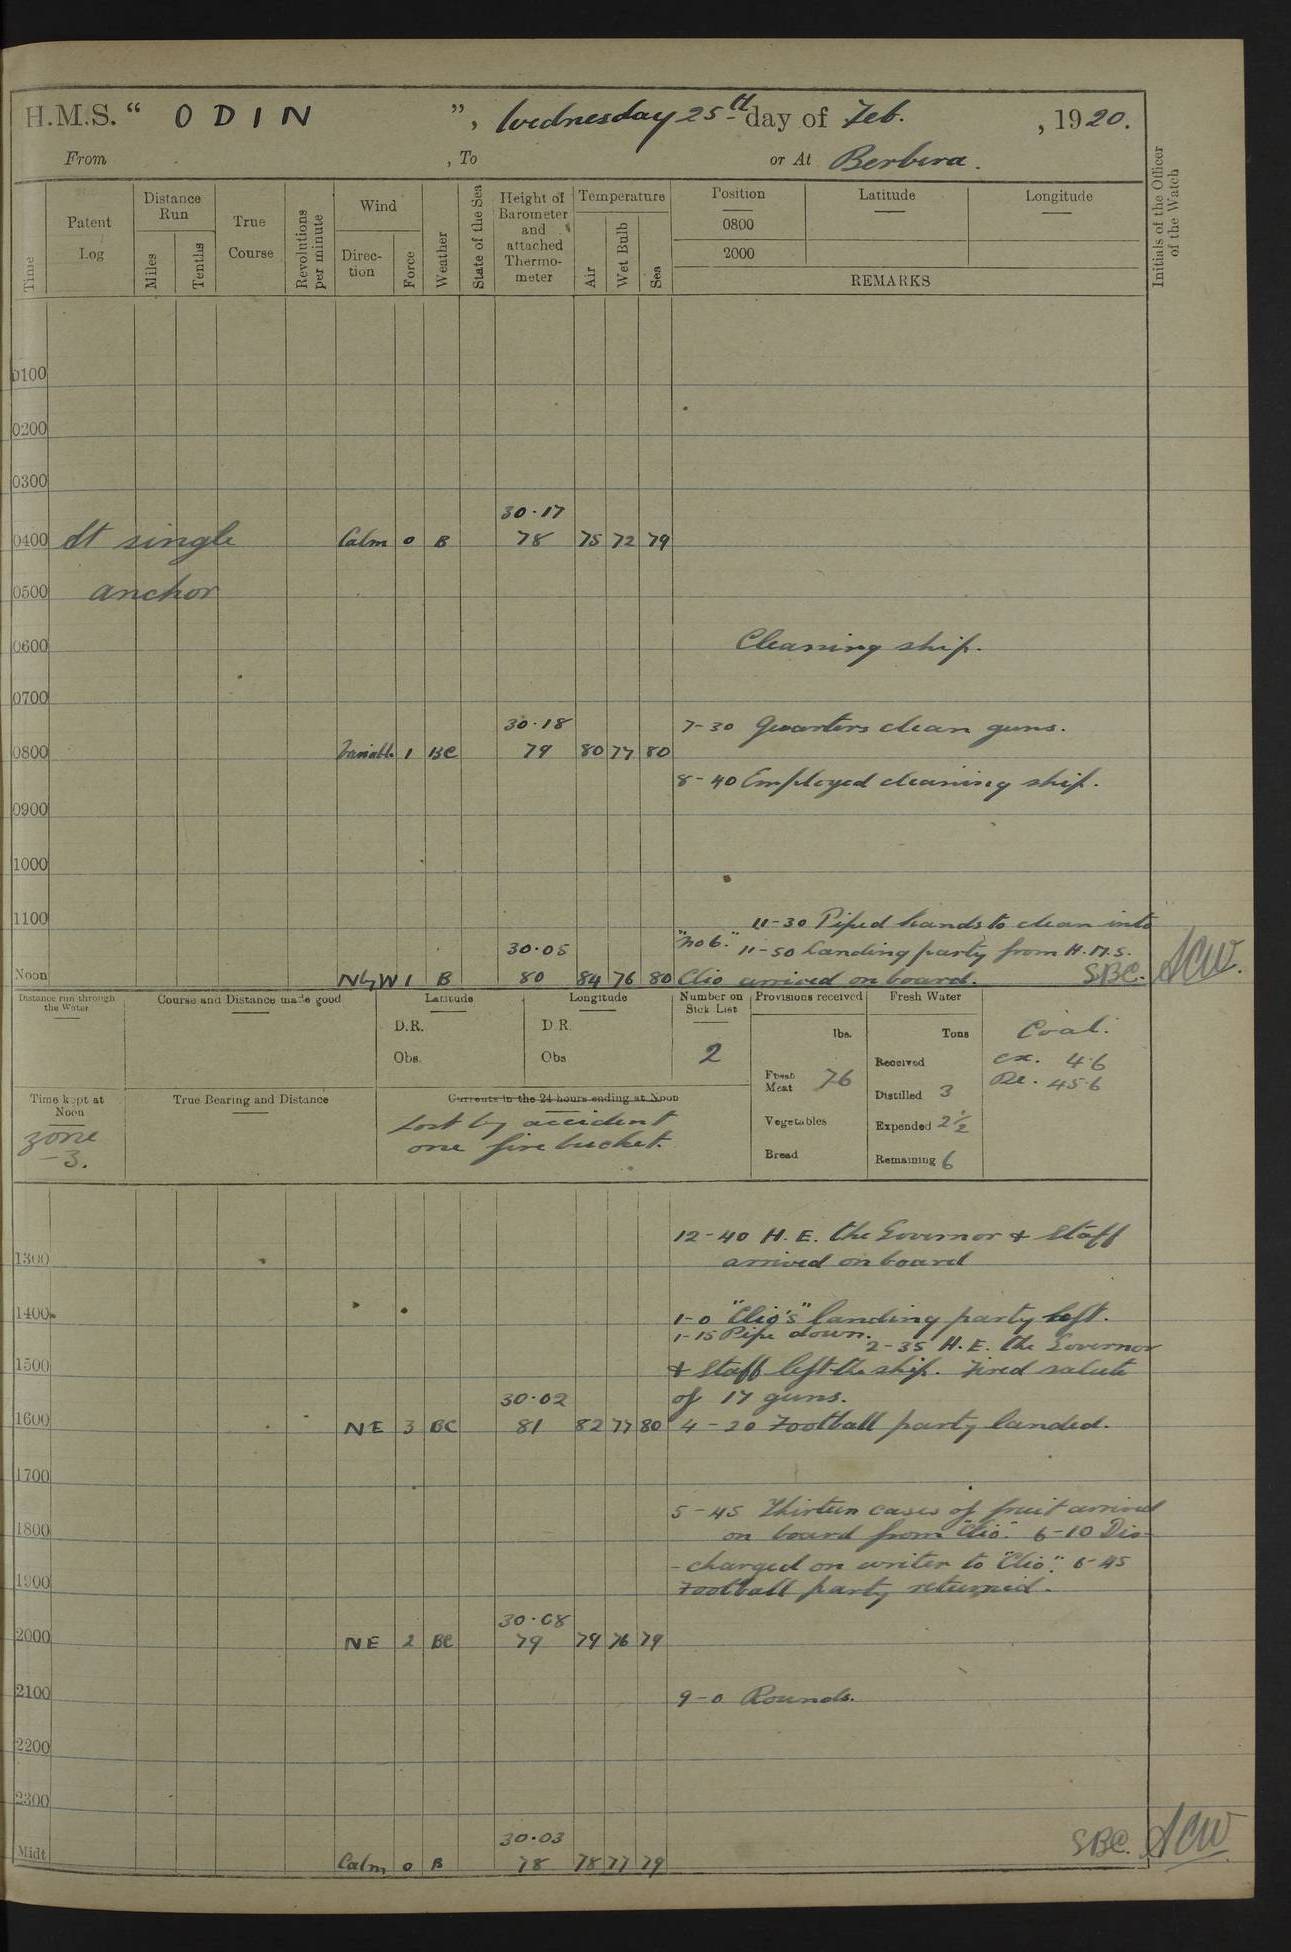 H.M.S. "ODIN", Wednesday 25th day of Feb., 1920.
From , To or At Berbera.
Time
Patent Log
Distance Run
Miles
Tenths
True Course
Revolutions per minute
Wind
Direction
Force
Weather
State of the Sea
Height of Barometer and attached Thermometer
Temperature
Air
Wet Bulb
Sea
Position
0800
2000
Latitude
Longitude
REMARKS
Initials of the Officer of the Watch
0100
0200
0300
30.17
0400 At single Calm 0 B 78 75 72 79
0500 anchor
0600 Cleaning ship.
0700
30.18 7-30 Quarters clean guns.
0800 Variable 1 BC 79 80 77 80
8-40 Employed cleaning ship.
0900
1000
1100 11-30 Piped hands to clean into
30.05 "No 6." 11-50 Landing party from H.M.S.
Noon NbyW 1 B 80 84 76 80 Clio arrived on board. SBC. ACW.
Distance run through the Water
Course and Distance made good
Latitude
D.R.
Obs.
Longitude
D.R.
Obs
Number on Sick List
2
Provisions received
lbs.
Fresh Meat 76
Vegetables
Bread
Fresh Water
Tons
Received
Distilled 3
Expended 2½
Remaining 6
Coal.
Ex. 4.6
Re. 45.6
Time kept at Noon
Zone
-3.
True Bearing and Distance
Currents in the 24 hours ending at Noon
Lost by accident
one fire bucket.
12-40 H.E. the Governor & Staff
1300 arrived on board
1400 1-0 "Clio's" landing party left.
1-15 Pipe down. 2-35 H.E. the Governor
1500 & Staff left the ship. Fired salute
30.02 of 17 guns.
1600 NE 3 BC 81 82 77 80 4-20 Football party landed.
1700
5-45 Thirteen cases of fruit arrived
1800 on board from "Clio". 6-10 Dis-
-charged on writer to "Clio". 6-45
1900 Football party returned.
30.08
2000 NE 2 BC 79 79 76 79
2100 9-0 Rounds.
2200
2300
30.03
Midt Calm 0 B 78 78 77 79 SBC. ACW